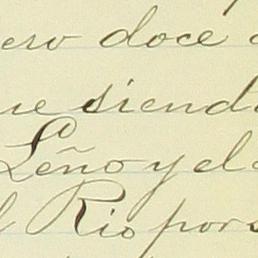 ero doce
ue siend
Leño y el
l Rio por s